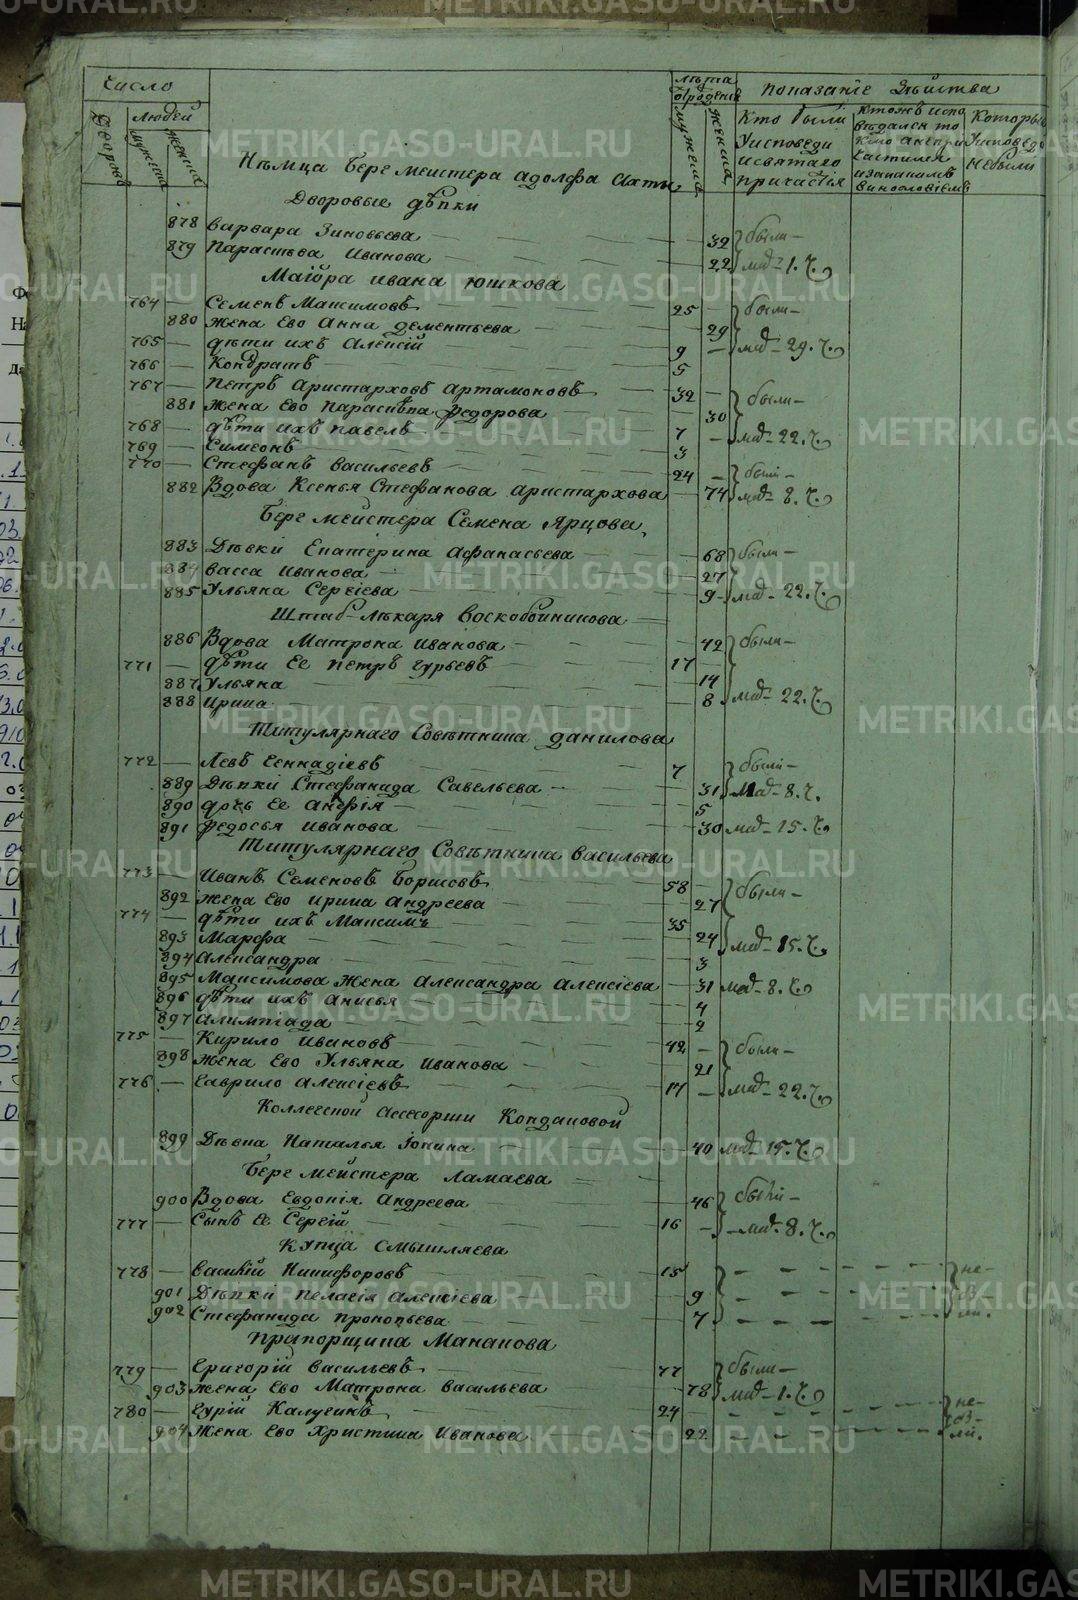 METRIKI.GASO-URAL.RU
Число
Людей
Дворовъ
мужеска
женска
Лѣта отрожденія
мужеска
женска
Показаніе дѣйства
Кто были у исповеди и святаго причастія
Кто же исповедался токмо а не причастился и за какимъ винословіемъ
Которые у исповеди не были
Нѣмца Берг мейстера адолфа
Дворовые дѣвки
878 Варвара Зиновьева 32 были
879 Парасѣва Иванова 22 мад 1. ч.
Маіора ивана юшкова
764 Семенъ Маѯимовъ 25 были
880 Жена Ево Анна дементьева 29
765 дѣти ихъ Алеѯій 9 мад 29. ч.
766 Кондратъ 5
767 Петръ Аристарховъ Артамоновъ 32 были
881 Жена Ево Парасѣва Федорова 30
768 дѣти ихъ павелъ 7 мад 22. ч.
769 Симеонъ 3
770 Стефанъ васильевъ 24 были
882 Вдова Ксенья Стефанова аристархова 74 мад 8. ч.
Берг мейстера Семена Ярцова
883 Дѣвки Екатерина Афанасьева 68 были
884 васса Иванова 27
885 Ульяна Сергіева 9 мад 22. ч.
Штаб лѣкаря Воскобойникова
886 Вдова Матрона Иванова 42 были
771 дѣти Ее петръ гурьевъ 17
887 Ульяна 14
888 Ирина 8 мад 22. ч.
Титулярнаго Совѣтника данилова
772 Левъ Геннадіевъ 7 были
889 Дѣвки Стефанида Савельева 31 мад 8. ч.
890 дочь Ее анфія 5
891 федосья иванова 30 мад 15. ч.
Титулярнаго Совѣтника васильева
773 Иванъ Семеновъ Боршовъ 58 были
892 Жена Ево ирина Андреева 27
774 дѣти ихъ Маѯимъ 35
893 Марфа 24 мад 15. ч.
894 Алеѯандра 3
895 Маѯимова Жена Алеѯандра Алеѯіева 31 мад 8. ч.
896 дѣти ихъ Анисья 4
897 алимпіада 2
775 Кирило Ивановъ 42 были
898 Жена Ево Ульяна Иванова 21
776 Гаврило Алеѯіевъ 17 мад 22. ч.
Коллегской Асесорши Кондаковой
899 Дѣвка Наталья Іонина 40 мад 15. ч.
Берг мейстера Ламаева
900 Вдова Евдокія Андреева 46 были
777 Сынъ Ее Сергій 16 мад 8. ч.
Купца Смышляева
778 василій Никифоровъ 15 не
901 Дѣвки пелагія Алеѯіева 9 бы
902 Стефанида прокопьева 7 ли.
Прапорщика Маканова
779 Григорій васильевъ 77 были
903 Жена Ево Матрона васильева 78 мад 1. ч.
780 Гурій Калугинъ 24 не бы
904 Жена Ево Христина Иванова 22 ли.